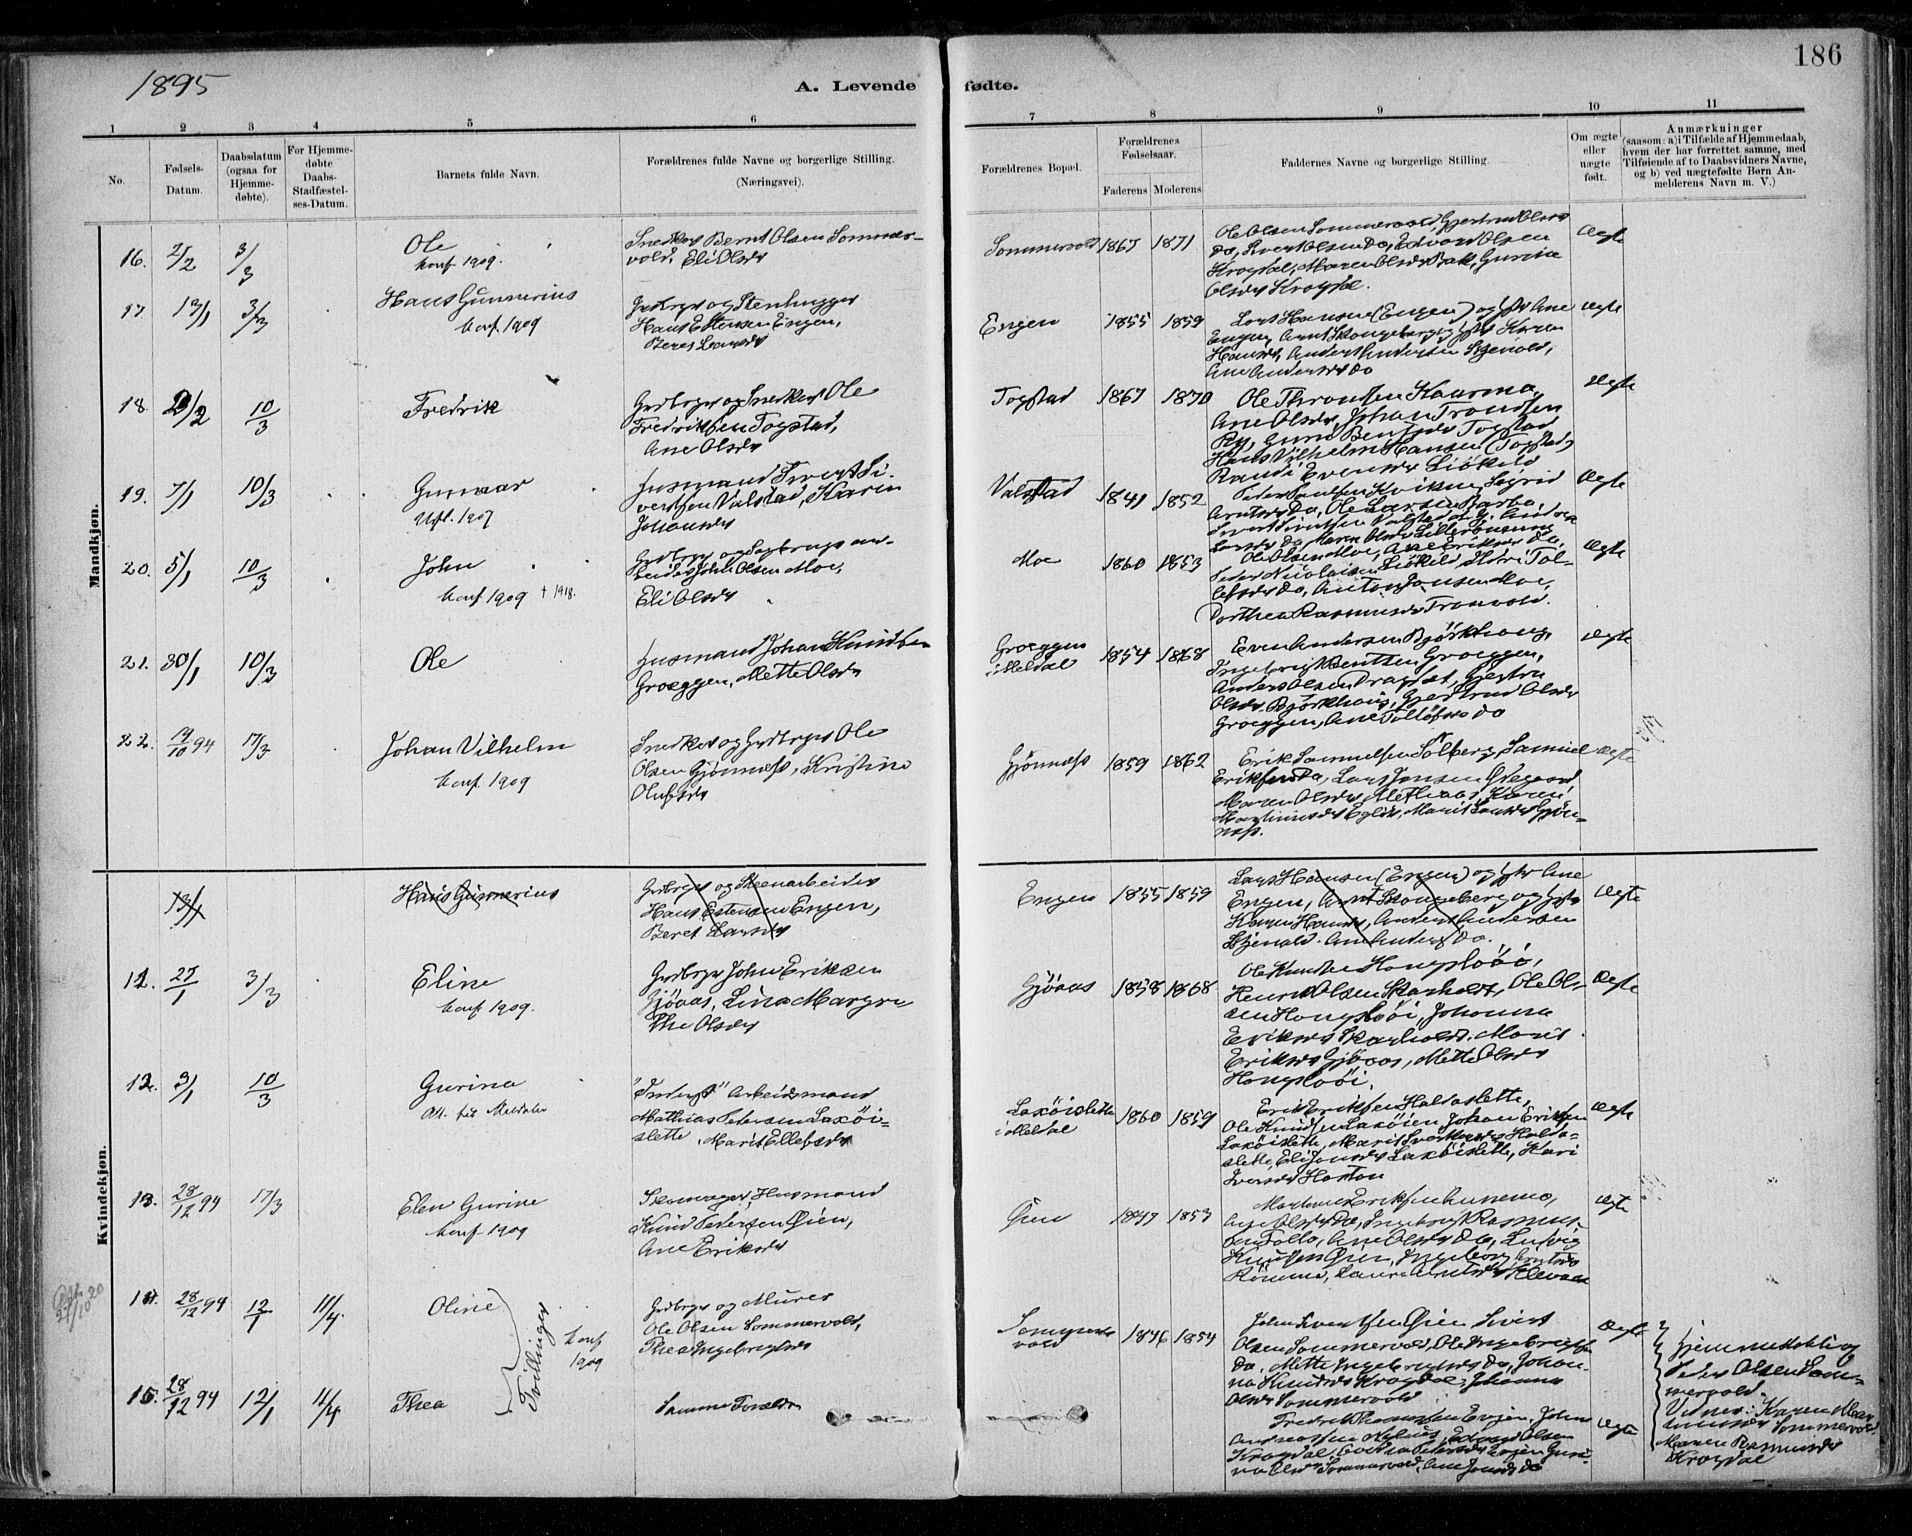 186
1895
A. Levende fødte.
1 2 3 4 5 6 7 8 9 10 11
No.
Fødsels-Datum.
Daabsdatum (ogsaa for Hjemme-døbte).
For Hjemme-døbte Daabs-Stadfæstel-ses-Datum.
Barnets fulde Navn.
Forældrenes fulde Navne og borgerlige Stilling.
(Næringsvei).
Forældrenes Bopæl.
Forældrenes Fødselsaar.
Faderens Moderens
Faddernes Navne og borgerlige Stilling.
Om ægte eller uægte født.
Anmærkninger
(saasom: a) i Tilfælde af Hjemmedaab,
hvem der har forrettet samme, med
Tilføiende af to Daabsvidners Navne,
og b) ved uægtefødte Børn An-
melderens Navn m. V.)
Mandkjøn.
16. 2/2 3/3 Ole
konf. 1909.
Snedker Bernt Olsen Sommer-
vold, Eli Olsdr
Sommervold 1867 1871
Ole Olsen Sommervold, Gjertrud Olsdr
Do, Sivert Olsen Do, Edvard Olsen
Krogdal, Maren Olsdr Bak, Gurina
Olsdr Krogdal.
Ægte
17. 13/1 3/3 Hans Gunnerius
konf. 1909
Grdbrgr og Stenhugger
Hans Estensen Engen,
Beret Larsdr
Engen 1855 1859
Lars Hansen (Engen) og Gift Ane
Engen, Arnt Skougeberg og Gift Karen
Hansdr, Anders Andersen Stjenald,
Ane Andersdr Do
Ægte
18. 2/2 10/3 Fredrik
Grdbrgr og Snedker Ole
Fredriksen Togstad,
Ane Olsdr
Togstad 1867 1870
Ole Thronsen Kaarmo,
Ane Olsdr, Johan Trondsen
Ry, Guru Bentsdr Togstad
Hans Vilhelm Hansen (Togstad)
Randi Evensdr Liökeld
Ægte
19. 7/1 10/3 Gunnar
Utfl. 1907
Husmand Sivert Si-
vertsen Valstad, Karen
Johansdr
Valstad 1841 1852
Peder Paulsen Kvikne, Sigrid
Arntsdr Do, Ole Larsen Barbo,
Ægte
20. 5/1 10/3 John
konf. 1909 + 1918.
Grdbrgr og Sagbrugsar-
beider John Olsen Moe,
Eli Olsdr
Moe 1860 1853
Ole Olsen Moe, Ane Eriksdr Do,
Peder Nicolaisen Liökeld,
Anton Jonsen Moe,
Dorthea Rasmusdr Tronvold.
Ægte
21. 30/1 10/3 Ole
Husmand Johan Knudsen
Groeggen, Mette Olsdr
Groeggen
i Meldal 1854 1868
Even Andersen Bjørkhaug,
Ingebrigt Bentsen Groeggen,
Anders Olsen Dragset, Gjertru
Olsdr Björkhaug, Gjertrud Olsdr
Groeggen, Ane Tollöfsdr Do
Ægte
22. 19/10 94 17/3 Johan Vilhelm
konf. 1909
Snedker og Grdbrgr Ole
Olsen Gjönnæss, Kristine
Olufsdr
Gjönnæss 1859 1862
Erik Samuelsen Solberg, Samuel
Eriksen Do, Lars Jonsen Ødegaard
Maren Olsdr
Ægte
Kvindekjøn.
13/1 Hans Gunnerius
Grdbrgr og Steenarbeider
Hans Estensen Engen,
Beret Larsdr
Engen 1855 1859
Lars Hansen (Engen) og Gift Ane
Engen, Arnt Skougeberg og Gift
Karen Hansdr, Anders Andersen
Stjenald. Ane Andersdr Do.
Ægte
11. 27/1 3/3 Eline
konf. 1909.
Grdbrgr John Eriksen
Gjöaas, Lina Margre-
the Olsdr
Gjöaas 1858 1868
Ole Knudsen Hongslööi,
Henrik Olsen Skarholt, Ole Ol-
sen Hongslööi, Johanna
Eriksdr Skarholt. Marit
Eriksdr Gjöaas, Mette Olsdr
Hongslööi.
Ægte
12. 3/1 10/3 Gurina
Att. til Meldalen
"Inderst" Arbeidsmand
Mathias Petersen Laxöi-
slette, Marit Ellefsdr
Laxöislette
i Meldal 1860 1859
Erik Eriksen Haldoslette,
Ole Knudsen Laxöien Johan Eriksen
Laxöislette, Marit Haldo-
slette, Eli Jonsdr Laxöislette, Kari
Iversdr Hoston
Ægte
13. 28/12 94 17/3 Elen Gurine
konf. 1909
Skomager, Husmand
Knud Pedersen Øien,
Ane Eriksdr
Øien 1847 1853
Eriksen Aunemo,
Ane Olsdr Do, Ingeborg Rasmus-
sen Follo, Ane Olsdr Do, Ludvig
Knudsen Øien, Ingeborg Arntsdr
Römme,
Ægte
14. 28/12 94 12/1 11/4 Oline
Tvillinger
konf 1909
Grdbrgr og Murer
Ole Olsen Sommervold,
Thea Ingebrigtsdr
Sommer-
vold 1846 1854
John Sivertsen Øien Sivert
Olsen Sommervold, Ole Ingebrigtsen
Do, Mette Ingebrigtsdr Do, Johan-
na Knudsdr Krogdal, Johanna
Olsdr Sommervold
Ægte
27/10 20
15. 28/12 94 12/1 11/4 Thea
Samme Forældre
Fredrik Thomassen Evjen, John
Andreassen Nylius, Edvard Olsen
Krogdal,
Ægte
Hjemmedöbt af
Peder Olsen Som-
mervold.
Vidner: Karen
Sommervold
Maren Rasmusdr
Krogdal